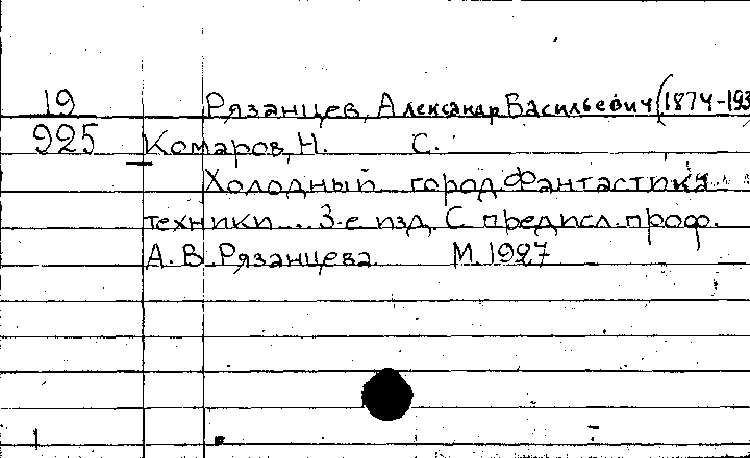 19 Рязанцев, Александр Васильевич (1874-193
925 Комаров, Н. С.
Холодный город. Фантастика
техники... 3-е изд. С предисл. проф.
А. В. Рязанцева. М. 1927